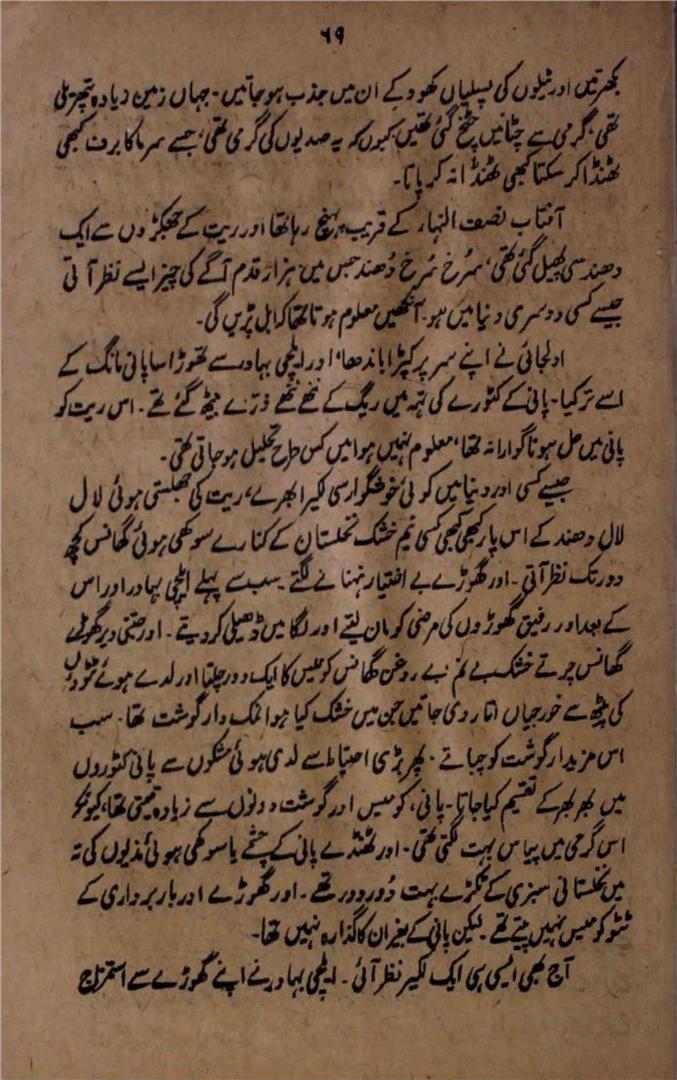 ۶۹
بکھرتیں اور ٹیلوں کی پسلیاں کھود کے ان میں جذب ہو جاتیں۔ جہاں زمین زیادہ پتھریلی
تھی، گرمی سے چٹانیں چٹخ گئی تھیں کیوں کہ یہ صدیوں کی گرمی تھی، جسے سرما کا برف کبھی
ٹھنڈا کر سکتا کبھی ٹھنڈا نہ کر پاتا۔
آفتاب نصف النہار کے قریب پہنچ رہا تھا اور ریت کے جھکڑوں سے ایک
دھند سی پھیل گئی تھی، سُرخ سُرخ دُھند جس میں ہزار قدم آگے کی چیز ایسے نظر آتی
جیسے کسی دوسری دنیا میں ہو۔ آنکھیں معلوم ہوتا تھا کہ ابل پڑیں گی۔
اولجائی نے اپنے سر پر کپڑا باندھا، اور ایلچی بہادر سے تھوڑا سا پانی مانگ کے
اسے تر کیا۔ پانی کے کٹورے کی تہہ میں ریگ کے ننھے ننھے ذرّے بیٹھ گئے تھے۔ اس ریت کو
پانی میں حل ہونا گوارا نہ تھا، معلوم نہیں ہوا میں کس طرح تحلیل ہو جاتی تھی۔
جیسے کسی اور دنیا میں کوئی خوشگوار سی لکیر ابھرے، ریت کی جھلستی ہوئی لال
لال دھند کے اس پار کبھی کبھی کسی نیم خشک نخلستان کے کنارے سوکھی ہوئی گھانس کچھ
دور تک نظر آتی۔ اور گھوڑے بے اختیار ہنہنانے لگتے۔ سب سے پہلے ایلچی بہادر اور اس
کے بعد اور رفیق گھوڑوں کی مرضی کو مان لیتے اور لگامیں ڈھیلی کر دیتے۔ اور جتنی دیر گھوڑے
گھانس چرتے خشک بے نم بے روغن گھانس کومیس کا ایک دور چلتا اور لدے ہوئے ٹٹوؤں
کی پیٹھ سے خورجیاں اتار دی جاتیں جن میں خشک کیا ہوا نمک دار گوشت تھا۔ سب
اس مزیدار گوشت کو چباتے۔ پھر بڑی احتیاط سے لدی ہوئی مشکوں سے پانی کٹوروں
میں بھر بھر کے تقسیم کیا جاتا۔ پانی، کومیس اور گوشت دونوں سے زیادہ قیمتی تھا، کیونکہ
اس گرمی میں پیاس بہت لگتی تھی۔ اور ٹھنڈے پانی کے چشمے یا سوکھی ہوئی ندیوں کی تہ
میں نخلستانی سبزی کے ٹکڑے بہت دُور دور تھے۔ اور گھوڑے اور بار برداری کے
ٹٹو کومیس نہیں پیتے تھے۔ لیکن پانی کے بغیر ان کا گذارہ نہیں تھا۔
آج بھی ایسی ہی ایک لکیر نظر آئی۔ ایلچی بہادر نے اپنے گھوڑے سے استمزاج